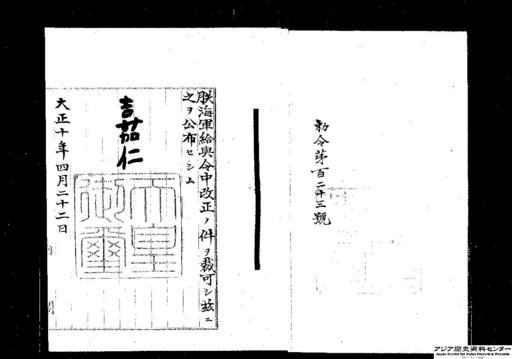 勅令第百二十三號
朕海軍給與令中改正ノ件ヲ裁可シ茲ニ
之ヲ公布セシム
嘉仁
天皇
御璽
大正十年四月二十二日
アジア歴史資料センター
Japan Center for Asian Historical Records